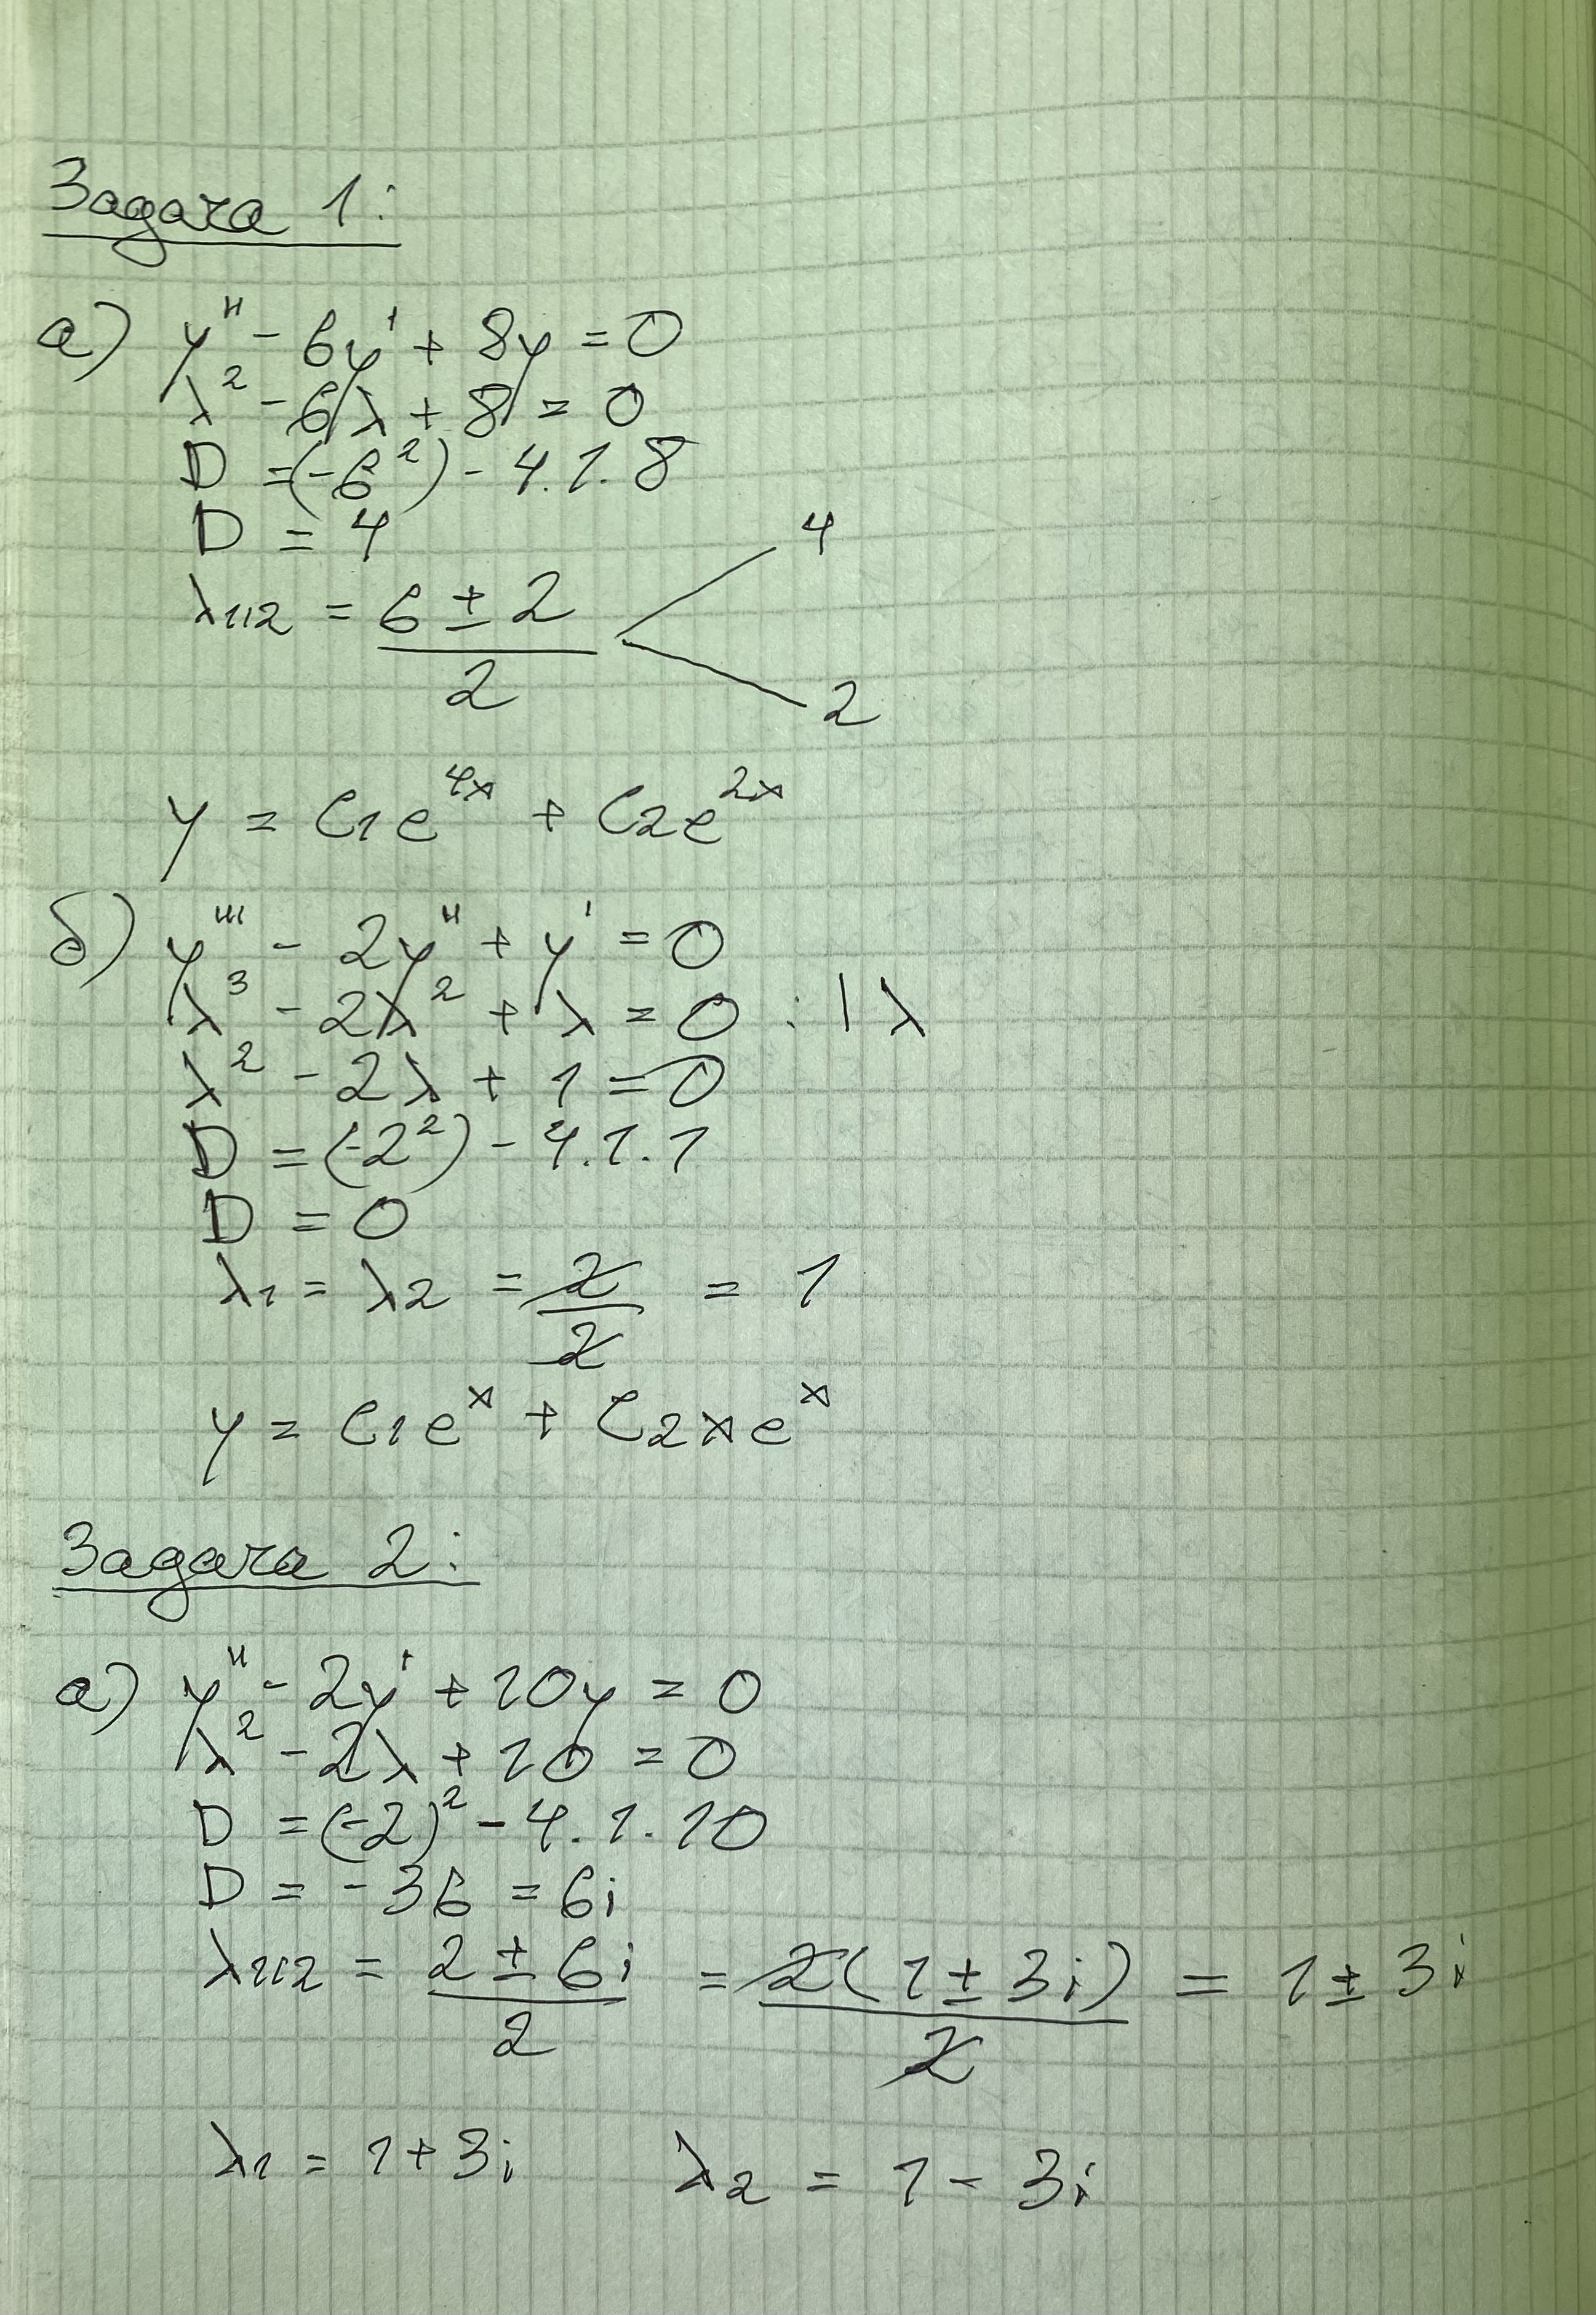 Задача 1:
а) y'' - 6y' + 8y = 0
λ² - 6λ + 8 = 0
D = (-6²) - 4.1.8
D = 4
λ1,2 = (6 ± 2)/2 < 4
2
y = C₁e^4x + C₂e^2x
б) y''' - 2y'' + y' = 0
λ³ - 2λ² + λ = 0 : | λ
λ² - 2λ + 1 = 0
D = (-2²) - 4.1.1
D = 0
λ₁ = λ₂ = 2/2 = 1
y = C₁e^x + C₂xe^x
Задача 2:
а) y'' - 2y' + 10y = 0
λ² - 2λ + 10 = 0
D = (-2)² - 4.1.10
D = -36 = 6i
λ1,2 = (2 ± 6i)/2 = 2(1 ± 3i)/2 = 1 ± 3i
λ₁ = 1 + 3i λ₂ = 1 - 3i